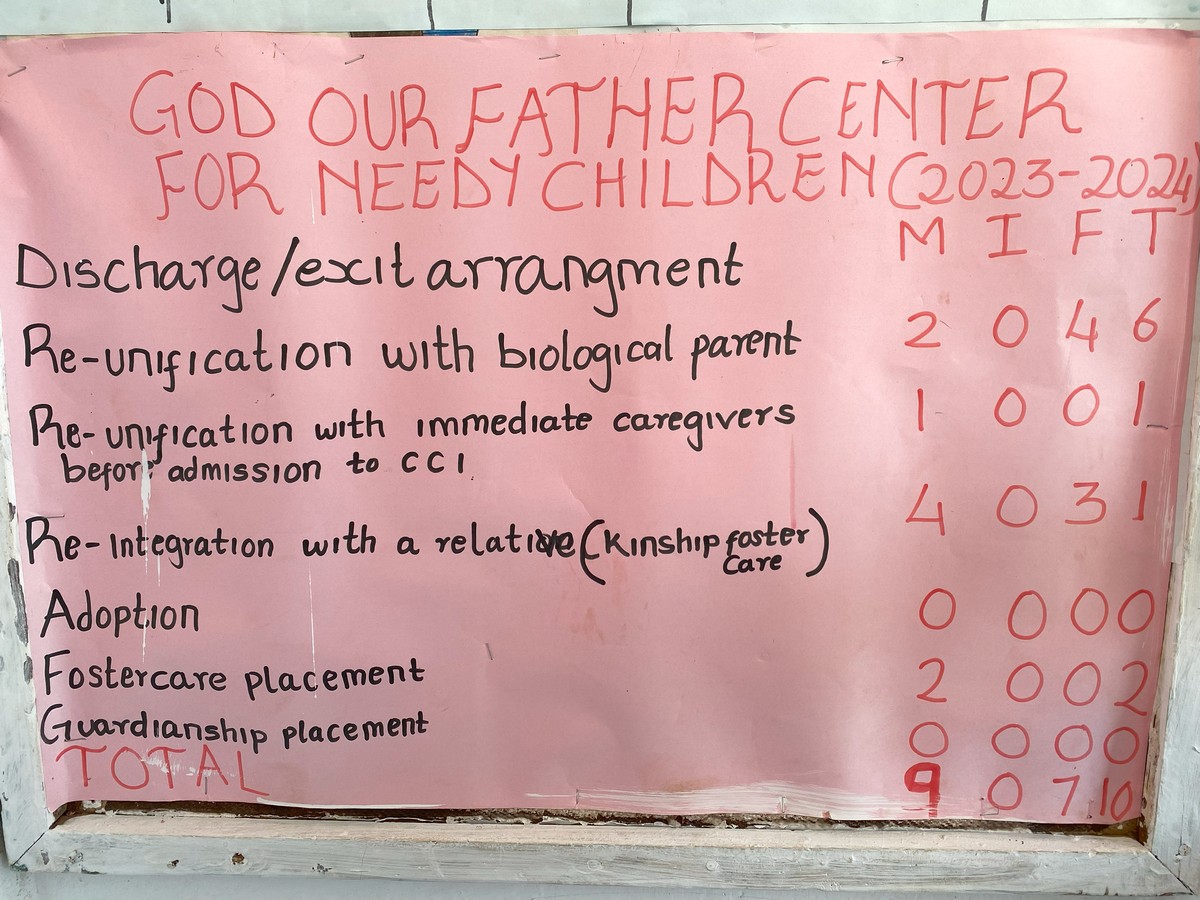 GOD OUR FATHER CENTER
FOR NEEDY CHILDREN (2023-2024)
M I F T
Discharge/exit arrangment
Re-unification with biological parent 2 0 4 6
Re-unification with immediate caregivers 1 0 0 1
before admission to CCI
Re-Integration with a relative (Kinship foster 4 0 3 1
Care)
Adoption 0 0 0 0
Fostercare placement 2 0 0 2
Guardianship placement 0 0 0 0
TOTAL 9 0 7 10